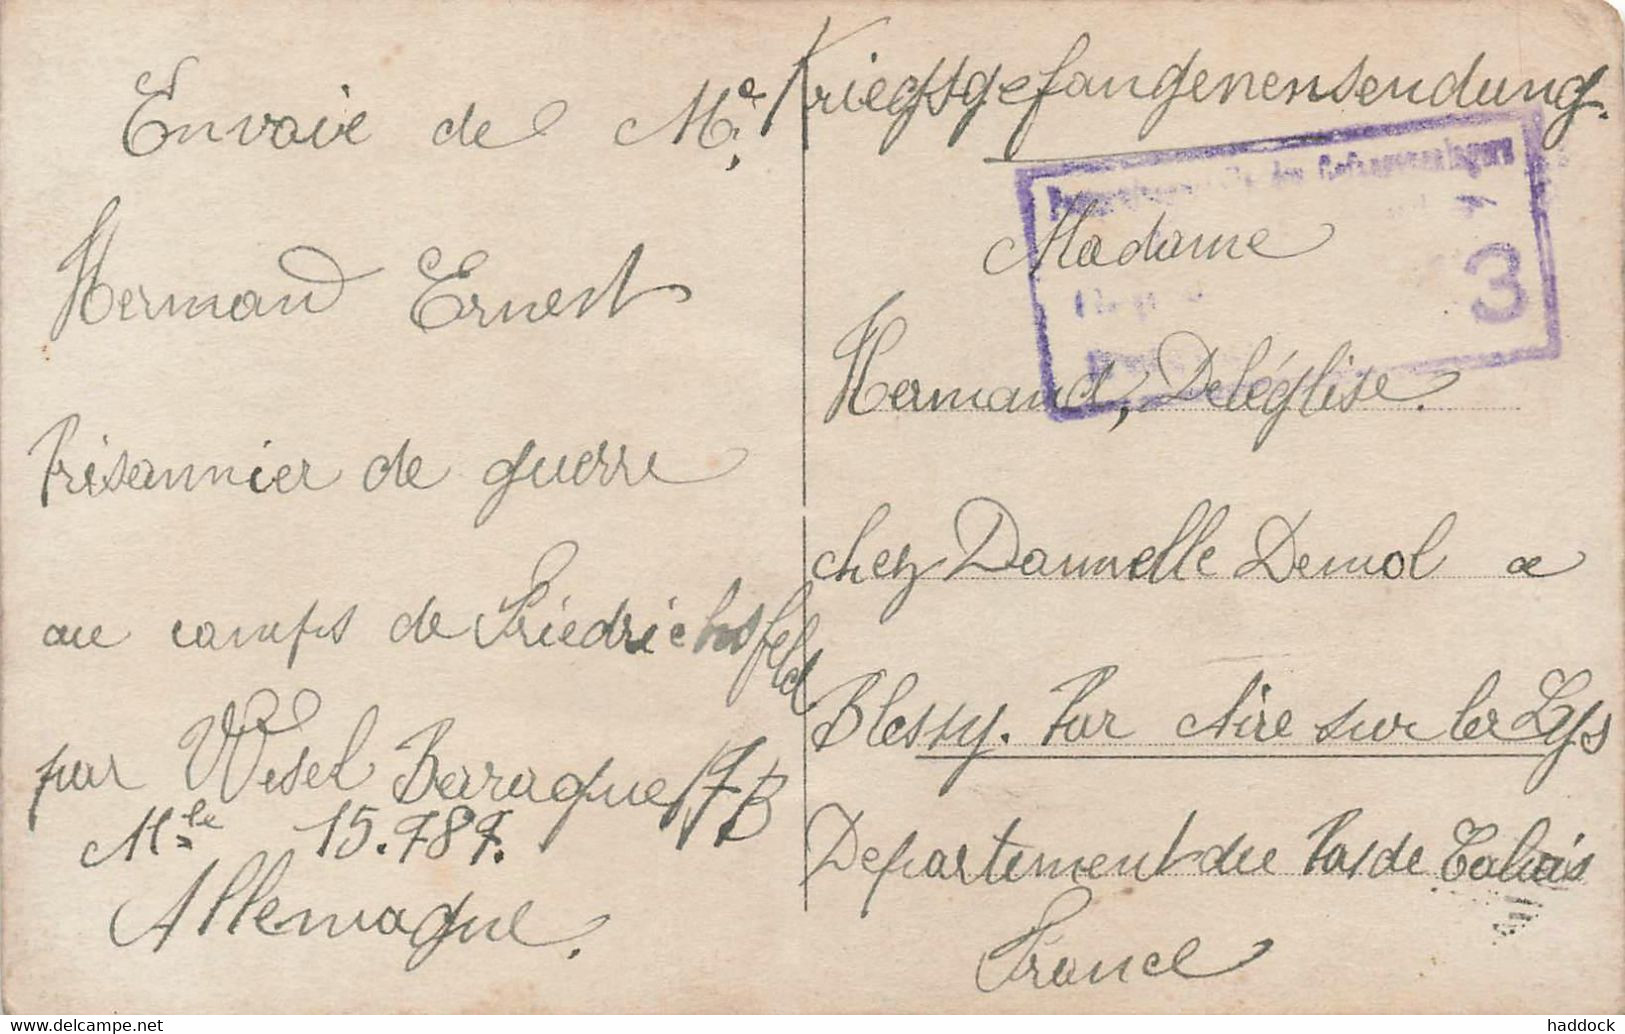 Envoie de Mr
Hermand Ernest
Prisannier de guerre
au camps de Friedrichsfeld
par Wesel Barraque 17 B
Mle 15.787.
Allemagne.
Kriegsgefangenensendung.
Gefangenenlagers
3
Madame
Hermand, Deléglise.
chez Demol a
Blessy. Par Aire sur la Lys
Departement du Pas de Calais
France
delcampe.net
haddock